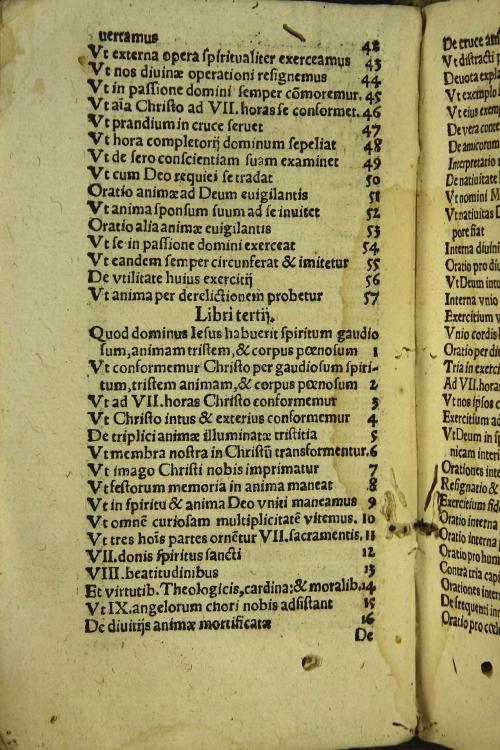 uertamus 42
Vt externa opera ſpiritualiter exerceamus 43
Vt nos diuinæ operationi reſignemus 44
Vt in paſſione domini ſemper cõmoremur. 45
Vt aĩa Chriſto ad VII. horas ſe conformet. 46
Vt prandium in cruce ſeruet 47
Vt hora completorij dominum ſepeliat 48
Vt de ſero conſcientiam ſuam examinet 49
Vt cum Deo requiei ſe tradat 50
Oratio animæ ad Deum euigilantis 51
Vt anima ſponſum ſuum ad ſe inuitet 52
Oratio alia animæ euigilantis 53
Vt ſe in paſſione domini exerceat 54
Vt eandem ſemper circunferat & imitetur 55
De vtilitate huius exercitij 56
Vt anima per derelictionem probetur 57
Libri tertij.
Quod dominus Ieſus habuerit ſpiritum gaudio
ſum, animam triſtem, & corpus pœnoſum 1
Vt conformemur Chriſto per gaudioſum ſpiri-
tum, triſtem animam, & corpus pœnoſum 2
Vt ad VII. horas Chriſto conformemur 3
Vt Chriſto intus & exterius conformemur 4
De triplici animæ illuminatæ triſtitia 5
Vt membra noſtra in Chriſtũ transformentur. 6
Vt imago Chriſti nobis imprimatur 7
Vt feſtorum memoria in anima maneat 8
Vt in ſpiritu & anima Deo vniti maneamus 9
Vt omnẽ curioſam multiplicitatẽ vitemus. 10
Vt tres hoĩs partes ornẽtur VII. ſacramentis, 11
VII. donis ſpiritus ſancti 12
VIII. beatitudinibus 13
Et virtutib. Theologicis, cardina: & moralib. 14
Vt IX. angelorum chori nobis adſiſtant 15
De diuitijs animæ mortificatæ 16
De
De cruce
Vt diſtracti
Deuota
Vt exemplo
Vt eius
De vera
De amicorum
Interpretatio
De natiuitate
Vt nomini
Vt natiuitas
pore fiat
Interna
Oratio pro
Vt Deum
Interna vnio
Exercitium
Vnio cordis
Oratio per
Tria in
Ad VII. horas
Vt nos ipſos
Exercitium
Vt Deum in
nicam
Orationes
Reſignatio &
Exercitium
Oratio interna
Oratio interna
Oratio pro
Contra tria
Orationes
De frequenti
Oratio pro